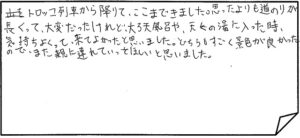 トロッコ列車から降りて、ここまできました。思ったよりも道のりが
長くって、大変だったけれど、大浴風呂や、天女の湯に入った時、
気持ちよくって、来てよかったと思いました。とちらもすごく景色が良かった
ので、また親に連れていってほしいと思いました。